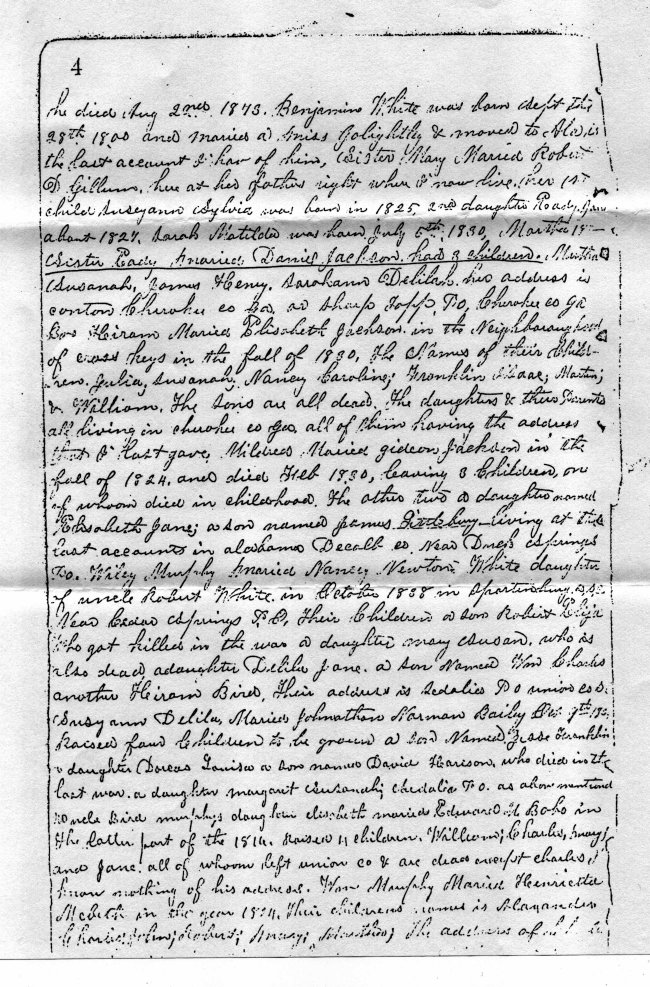 4
he died Aug 2nd 1873. Benjamin White was born Sept the
28th 1800 and maried a miss Golightly & moved to Ala, is
the last account I hav of him, Sister Mary Maried Robert
D Gillum, here at her fathers right wher I now live. Her 1st
child Suseyann Sylvia was born in 1825, 2nd daughter Eady,
about 1827. Sarah Matilda was born July 5th 1830, Martha 18
Sister Eady Maried Daniel Jackson. had 3 children. Martha
Susanah, James Henry. Sarahann Delilah. her address is
canton Cherokee co ga. or Sharp Topp, P.O, Cherokee co ga
Bro Hiram Maried Elisabeth Jackson. in the Neighbourughood
of cross keys in the fall of 1830, The Names of their Child-
ren, Julia, Susanah, Nancy Caroline; Franklin Isaac; Martin;
& William. The sons are all dead. The daughters & their Parents
all living in cherokee co ga, all of them having the address
that I last gave. Mildred Maried gideon Jackson in the
fall of 1824, and died Feb 1830, leaving 3 Children, on
of whom died in childhood. The other two a daughter named
Elisabeth Jane; a son named James living at the
last accounts in alabama Decalb co. Near Springs
P.O. Wiley Murphy Maried Nancy Newton White daughter
of uncle Robert White. in October 1838 in Spartenburg
Near Cedar Springs P.O, Their Children a son Robert Elija
Who got killed in the war a daughter mary Susan, who is
also dead a daughter Delila Jane. a son Named Wm Charles
another Hiram Bird, Their address is Sedalia P O union co S.
Susyann Delila, Maried Johnathan Norman Bailey
Raised four Children to be grown a son Named Jesse Franklin
a daughter Dorcas Louisa a son named David Harison, who died in the
last war. a daughter margarit Susanah; Sedalia P.O. as above mentiond
uncle Bird murphys daughter elisebeth maried Edward H Bobo in
the latter part of the 1814. Raised 4 children. William; Charles, mary
and Jane. all of whom left union co & are dead except charles, I
know nothing of his address. Wm Murphy Maried Henrietta
Mcbeth in the year 1824. Their childrens names is Alaxander
Charles; John; Robert; Mary; The address of